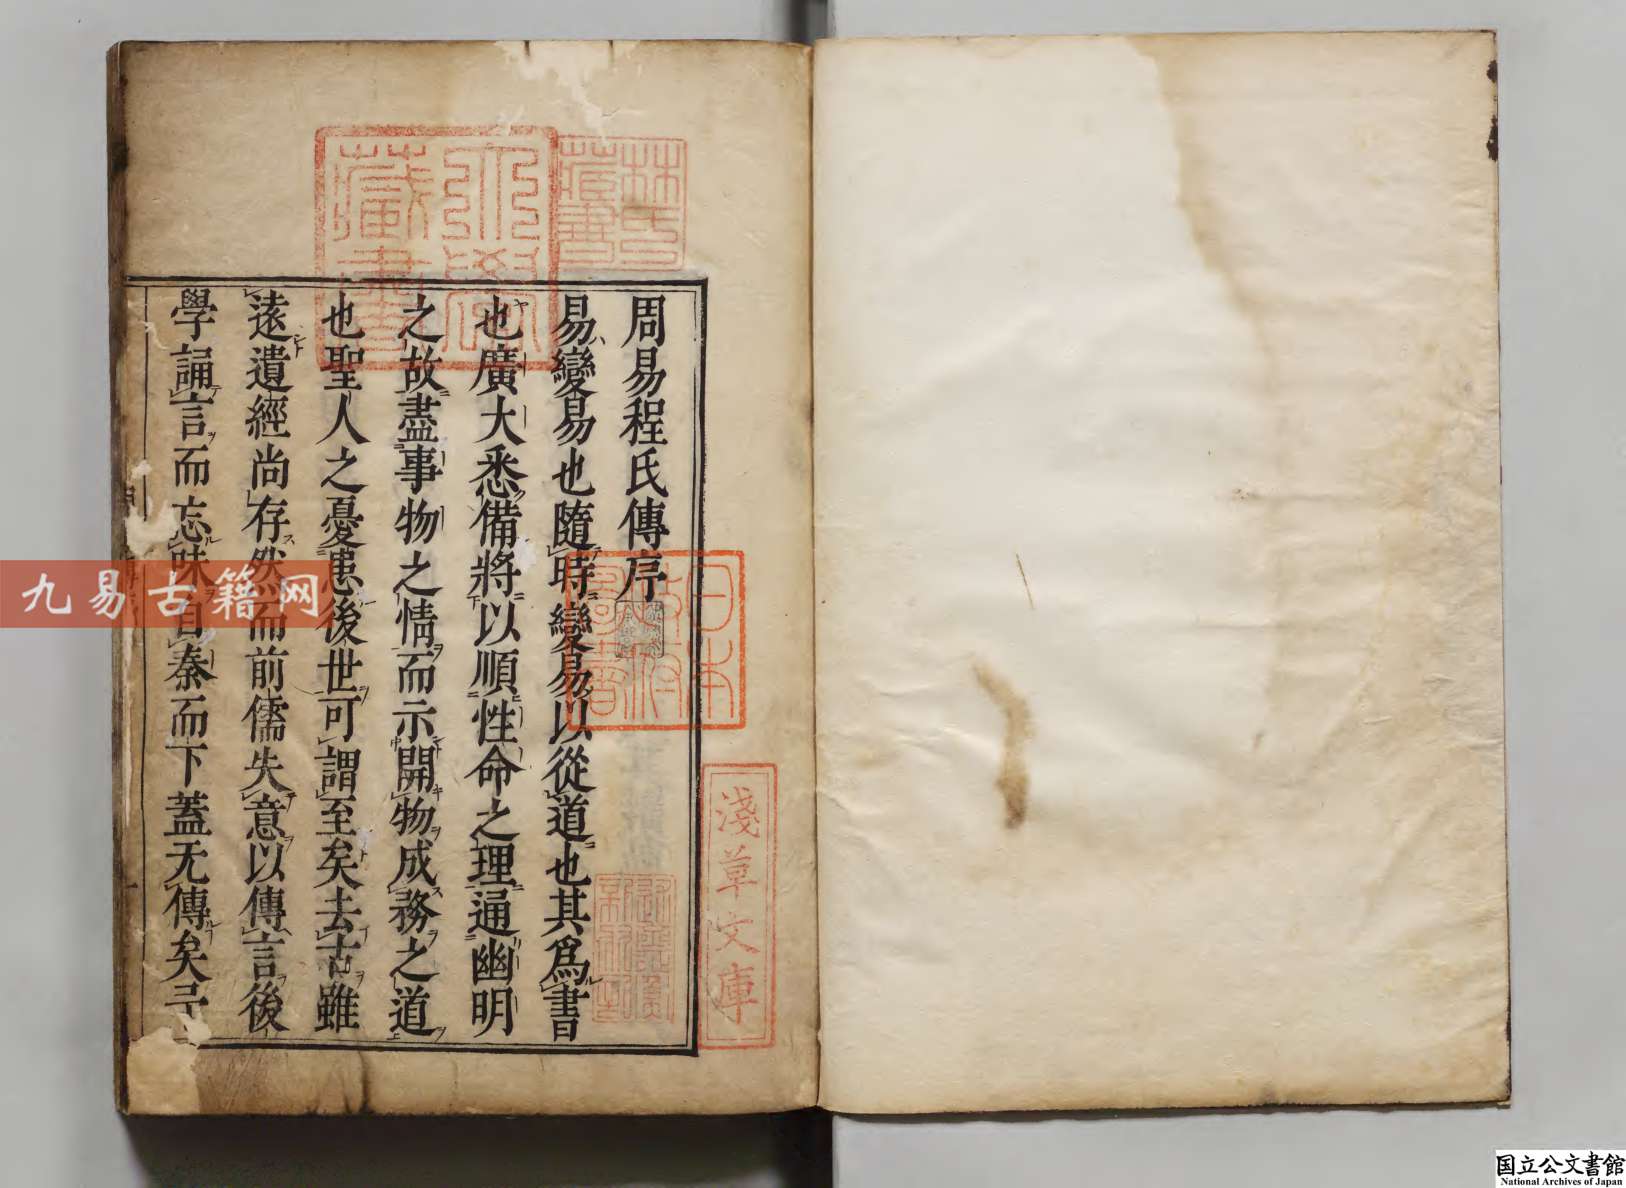 周易程氏傳序
易變易也隨時變易以從道也其爲書
也廣大悉備將以順性命之理通幽明
之故盡事物之情而示開物成務之道
也聖人之憂患後世可謂至矣去古雖
遠遺經尚存然而前儒失意以傳言後
學誦言而忘味自秦而下蓋无傳矣予
林氏
藏書
大學
藏書
日本
政府
圖書
淺草文庫
九易古籍网
国立公文書館
National Archives of Japan